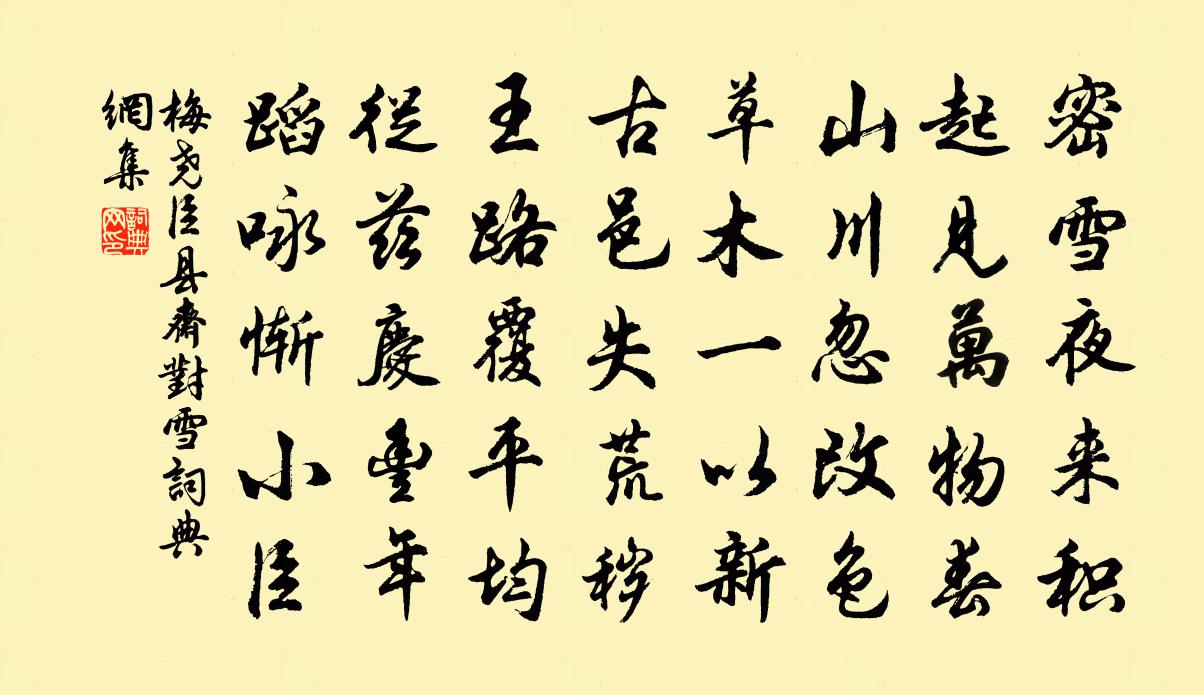 密雪夜来积
起見萬物春
山川忽改色
草木一以新
古邑失荒穢
王路覆平均
從茲慶豐年
蹈咏慚小臣
梅尧臣县齋對雪詞典
網集
詞典网印